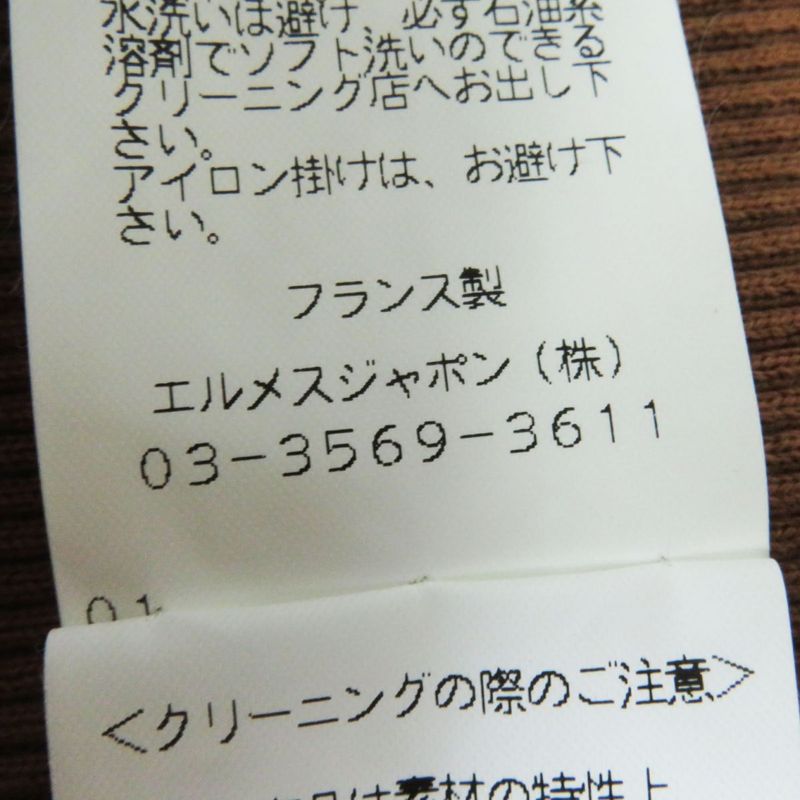 水洗いは避け、必ず石油系
溶剤でソフト洗いのできる
クリーニング店へお出し下
さい。
アイロン掛けは、お避け下
さい。
フランス製
エルメスジャポン(株)
03-3569-3611
01
<クリーニングの際のご注意>
は素材の特性上